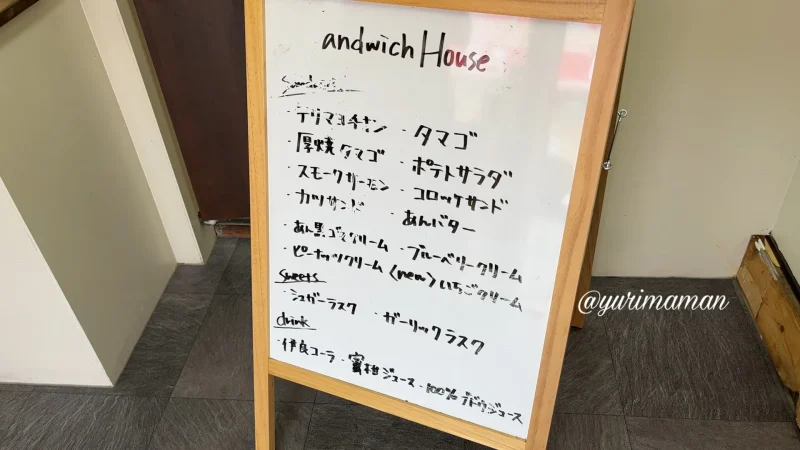 andwich House
Sandwich
・テリマヨチキン ・タマゴ
・厚焼タマゴ ・ポテトサラダ
・スモークサーモン ・コロッケサンド
・カツサンド ・あんバター
・あん黒ゴマクリーム ・ブルーベリークリーム
・ピーナッツクリーム 〈new〉いちごクリーム
sweets
・シュガーラスク ・ガーリックラスク
drink
・伊良コーラ ・蜜柑ジュース ・100%ブドウジュース
@yurimaman